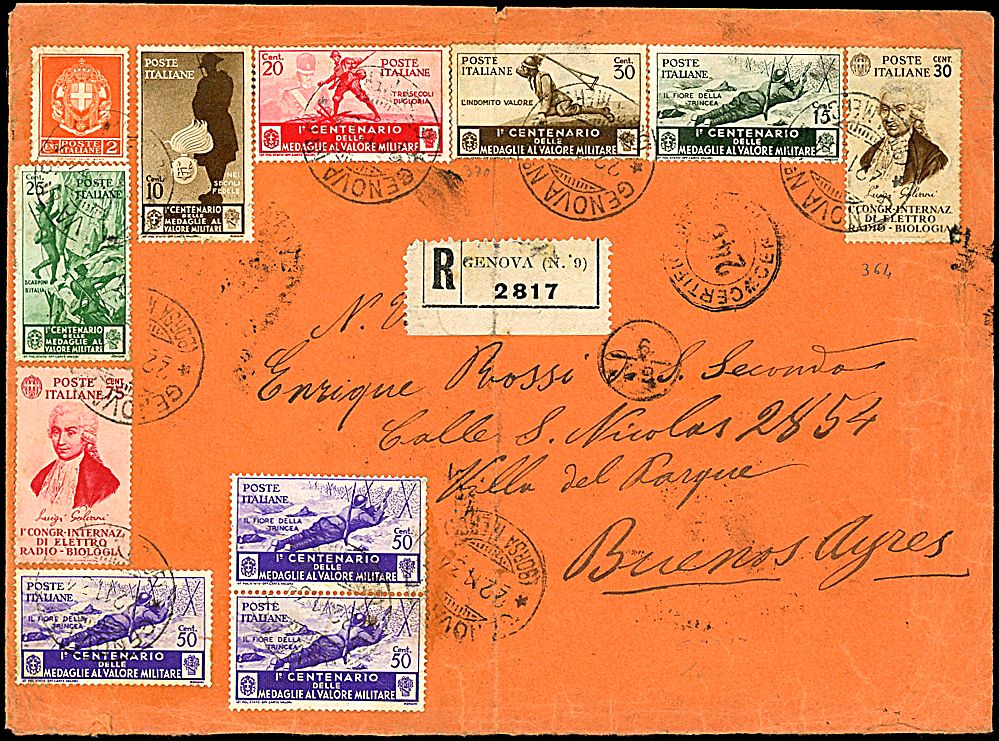 POSTE
ITALIANE 2
POSTE
ITALIANE
NEI
SECOLI
FEDELE
10
Iº CENTENARIO
DELLE
MEDAGLIE AL
VALORE MILITARE
Cent.
20
POSTE
ITALIANE
TRE SECOLI
DI GLORIA
Iº CENTENARIO
DELLE
MEDAGLIE AL VALORE MILITARE
POSTE
ITALIANE
Cent.
30
L'INDOMITO VALORE
Iº CENTENARIO
DELLE
MEDAGLIE AL VALORE MILITARE
POSTE
ITALIANE
IL FIORE DELLA
TRINCEA
Cent.
75
Iº CENTENARIO
DELLE
MEDAGLIE AL VALORE MILITARE
POSTE CENT.
ITALIANE 30
Luigi Galvani
Iº CONGR·INTERNAZ.
DI ELETTRO
RADIO-BIOLOGIA
GENOVA Nº
GENOVA Nº
364
25
POSTE
ITALIANE
SCARPONI
D'ITALIA
Iº CENTENARIO
DELLE
MEDAGLIE AL
VALORE MILITARE
R
GENOVA (N. 9)
2817
GENOVA
POSTE CENT.
ITALIANE 75
Luigi Galvani
Iº CONGR·INTERNAZ.
DI ELETTRO
RADIO-BIOLOGIA
Enrique Rossi S. Secondo
Calle S. Nicolas 2854
Villa del Parque
Buenos Ayres
POSTE
ITALIANE
IL FIORE DELLA
TRINCEA
Cent.
50
Iº CENTENARIO
DELLE
MEDAGLIE AL VALORE MILITARE
POSTE
ITALIANE
IL FIORE DELLA
TRINCEA
Cent.
50
Iº CENTENARIO
DELLE
MEDAGLIE AL VALORE MILITARE
POSTE
ITALIANE
IL FIORE DELLA
TRINCEA
Cent.
50
Iº CENTENARIO
DELLE
MEDAGLIE AL VALORE MILITARE